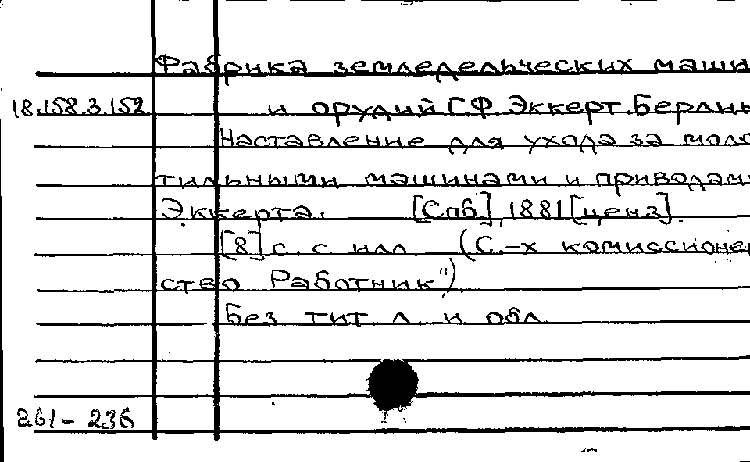 Фабрика земледельческих маши
18.158.3.152 и орудий Г.Ф. Эккерт. Берлин
Наставление для ухода за моло
тильными машинами и приводам
Эккерта. [Спб], 1881 [ценз].
[8] с. с илл (С.-х комиссионе
ство Работник")
Без тит л. и обл.
261-236